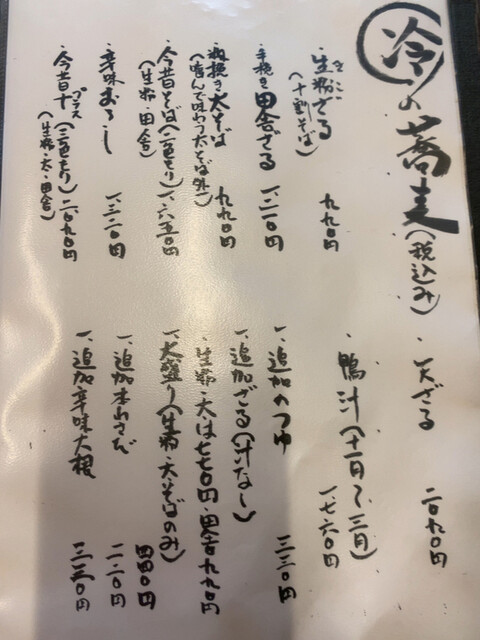 冷の蕎麦(税込み)
・生粉ざる 九九〇円
きこ
(十割そば)
・手挽き田舎ざる 一、二一〇円
・粗挽き太そば 九九〇円
(噛んで味わう太そば外一)
・今昔そば(二色もり) 一、六五〇円
(生粉・田舎)
・辛味おろし 一、三二〇円
・今昔+(三色もり) 二〇九〇円
プラス
(生粉・太・田舎)
・天ざる 二〇九〇円
・鴨汁(十一月〜三月) 一、七六〇円
一、追加のつゆ 二二〇円
一、追加ざる(汁なし)
・生粉・太は七七〇円・田舎九九〇円
一、大盛り(生粉、太そばのみ) 四四〇円
一、追加本わさび 二二〇円
一、追加辛味大根